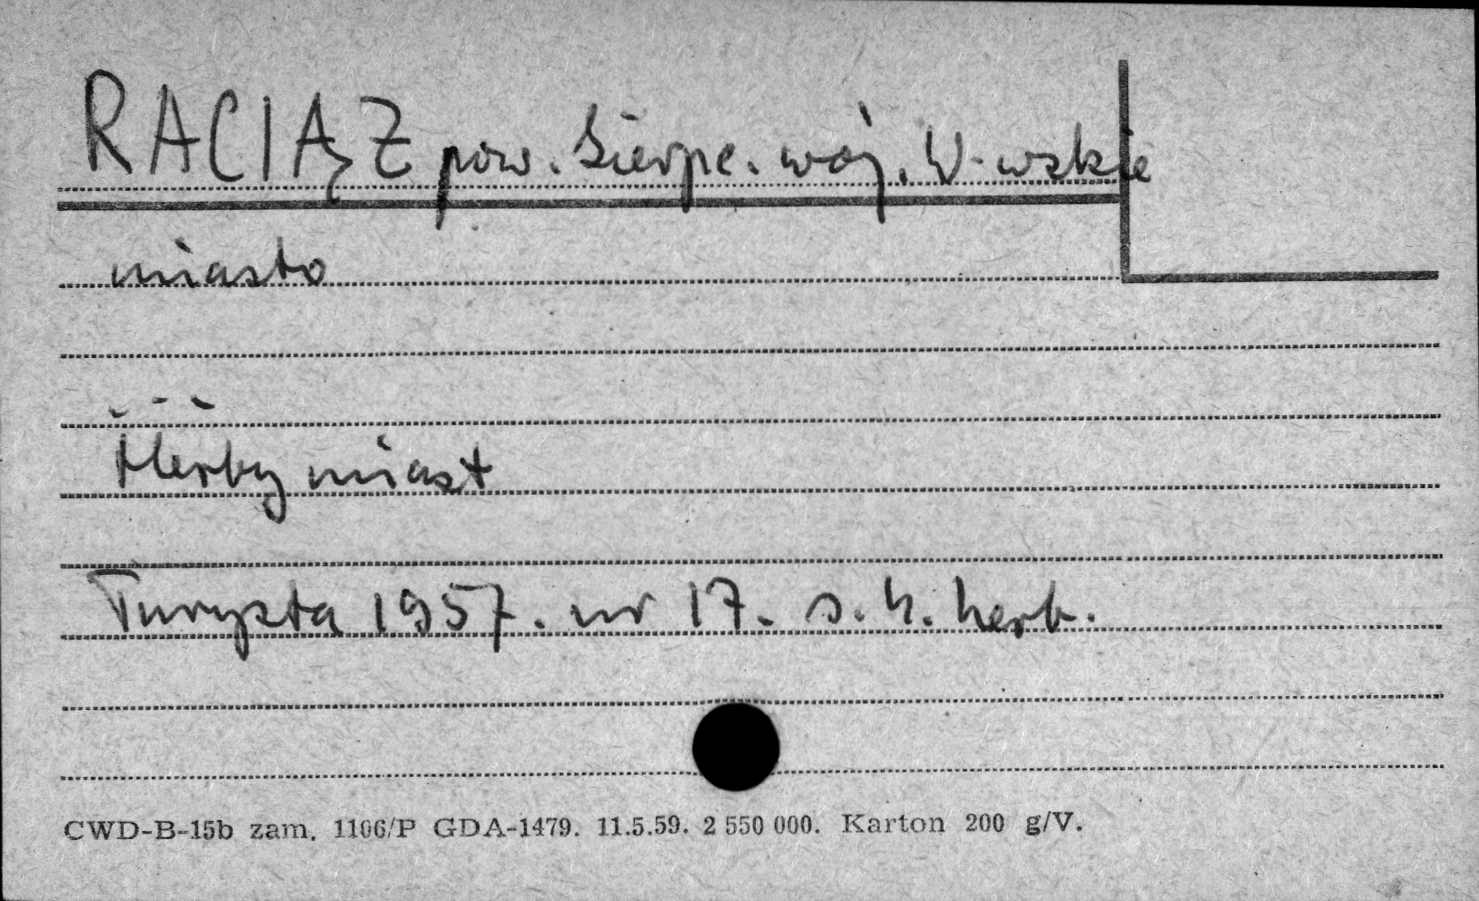 RACIĄŻ pow. Sierpc. woj. W-wskie
miasto
Herby miast
Turysta 1957. nr 17. s. 4. herb.
CWD-B-15b zam. 1106/P GDA-1479. 11.5.59. 2 550 000. Karton 200 g/V.